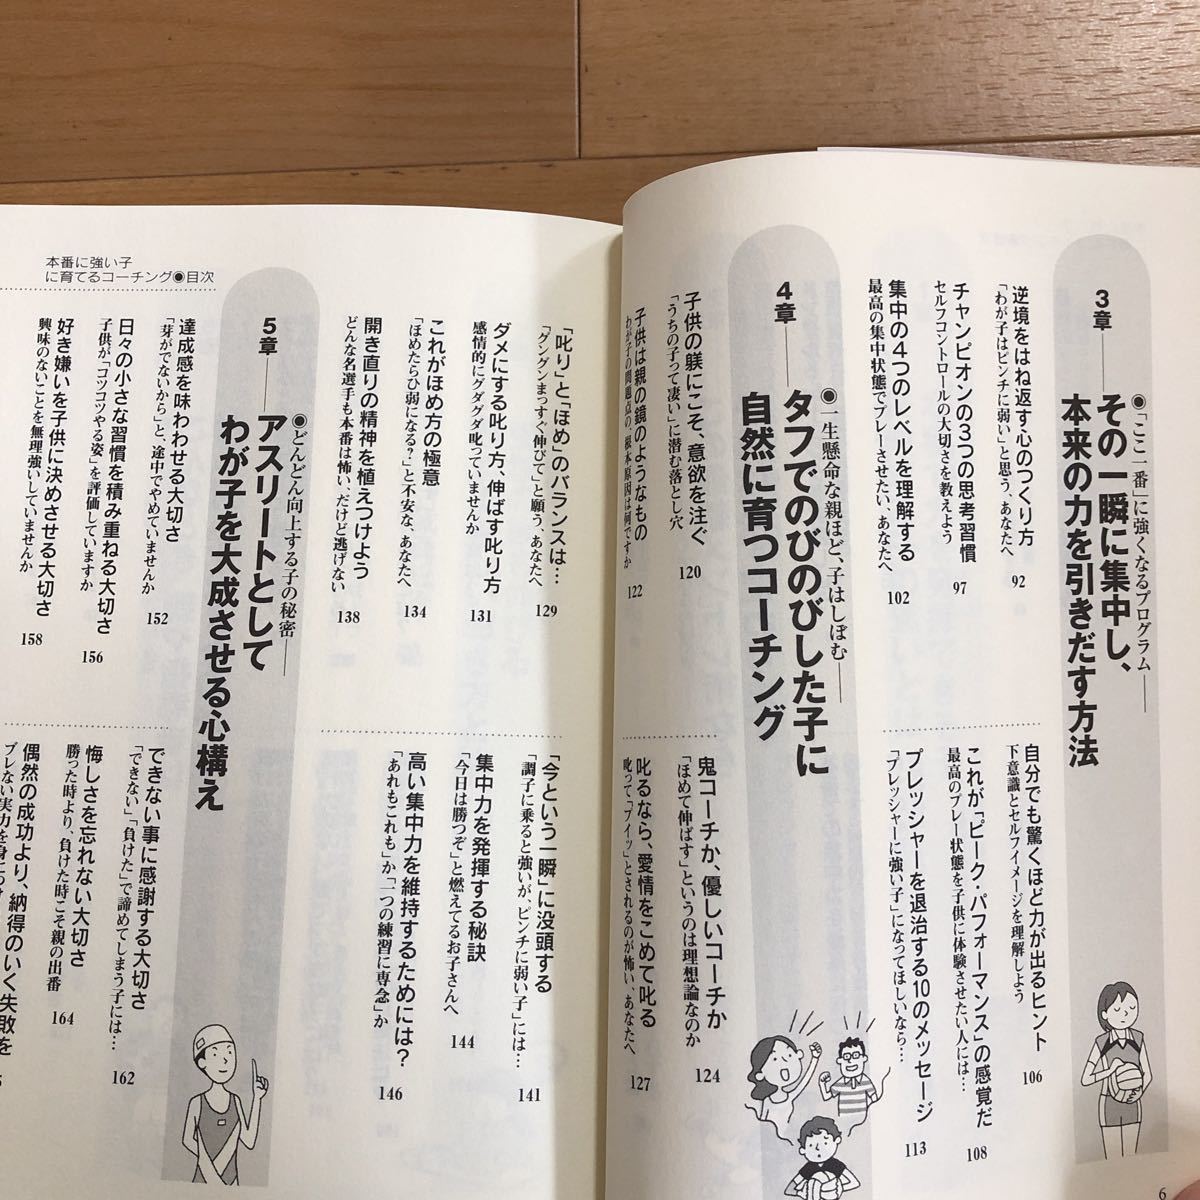 3章
●「ここ一番」に強くなるプログラム
その一瞬に集中し、
本来の力を引きだす方法
逆境をはね返す心のつくり方
「わが子はピンチに弱い」と思う、あなたへ
92
チャンピオンの3つの思考習慣
セルフコントロールの大切さを教えよう
97
集中の4つのレベルを理解する
最高の集中状態でプレーさせたい、あなたへ
102
自分でも驚くほど力が出るヒント
下意識とセルフイメージを理解しよう
106
これが「ピーク・パフォーマンス」の感覚だ
最高のプレー状態を子供に体験させたい人には…
108
プレッシャーを退治する10のメッセージ
「プレッシャーに強い子」になってほしいなら…
113
4章
●一生懸命な親ほど、子はしぼむ
タフでのびのびした子に
自然に育つコーチング
子供の躾にこそ、意欲を注ぐ
「うちの子って凄い」に潜む落とし穴
120
子供は親の鏡のようなもの
わが子の問題点の、根本原因は何ですか
122
鬼コーチか、優しいコーチか
「ほめて伸ばす」というのは理想論なのか
124
叱るなら、愛情をこめて叱る
叱って「プイッ」とされるのが怖い、あなたへ
127
6
「叱り」と「ほめ」のバランスは…
「グングンまっすぐ伸びて」と願う、あなたへ
129
ダメにする叱り方、伸ばす叱り方
感情的にグダグダ叱っていませんか
131
これがほめ方の極意
「ほめたらひ弱になる?」と不安な、あなたへ
134
開き直りの精神を植えつけよう
どんな名選手も本番は怖い、だけど逃げない
138
「今という一瞬」に没頭する
「調子に乗ると強いが、ピンチに弱い子」には…
141
集中力を発揮する秘訣
「今日は勝つぞ」と燃えてるお子さんへ
144
高い集中力を維持するためには?
「あれもこれも」か「一つの練習に専念」か
146
5章
●どんどん向上する子の秘密
アスリートとして
わが子を大成させる心構え
本番に強い子
に育てるコーチング●目次
達成感を味わわせる大切さ
「芽がでないから」と、途中でやめていませんか
152
日々の小さな習慣を積み重ねる大切さ
子供が「コツコツやる姿」を評価していますか
156
好き嫌いを子供に決めさせる大切さ
興味のないことを無理強いしていませんか
158
できない事に感謝する大切さ
「できない」「負けた」で諦めてしまう子には…
162
悔しさを忘れない大切さ
勝った時より、負けた時こそ親の出番
164
偶然の成功より、納得のいく失敗を
ブレない実力を身につけ